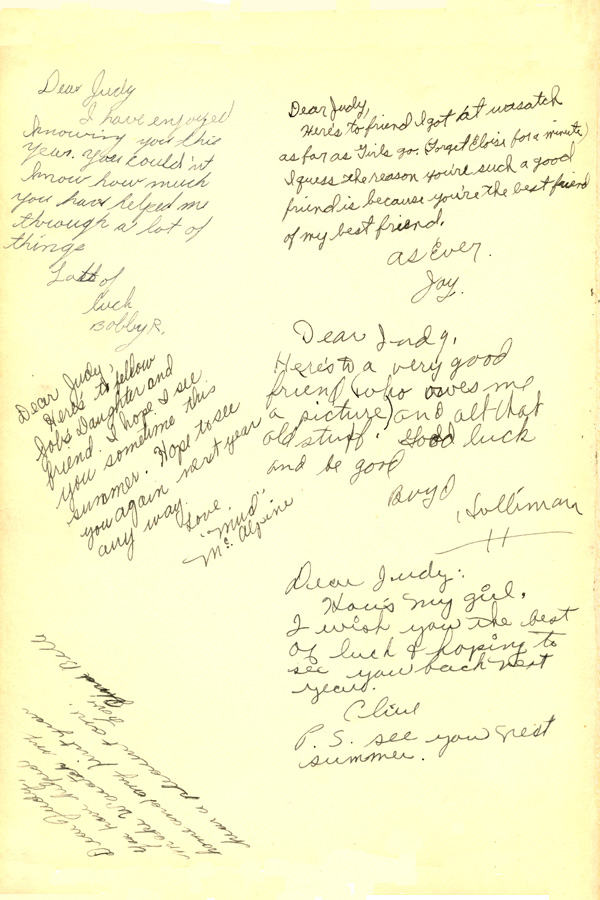 Dear Judy
I have enjoyed
knowing you this
year. you couldn't
know how much
you have helped me
through a lot of
things
Lots of
luck
Bobby R.
Dear Judy,
Here's to friend I got at wasatch
as far as Girls go. (Forget Eloise for a minute)
I guess the reason you're such a good
friend is because you're the best friend
of my best friend.
As Ever.
Jay.
Dear Judy,
Here's to fellow
Job's Daughter and
friend. I hope I see
you sometime this
summer. Hope to see
you again next year
any way.
Love,
"Mud"
Mc Alpine
Dear Judy,
Here's to a very good
friend (who owes me
a picture) and all that
old stuff. Good luck
and be good
Boyd
Holliman
Dear Judy:
How's my girl.
I wish you the best
of luck & hoping to
see you back next
year.
Clive
P. S. see you next
summer.
Dear Judy,
You have helped
make Wasatch my
home and my first year
here a pleasant one.